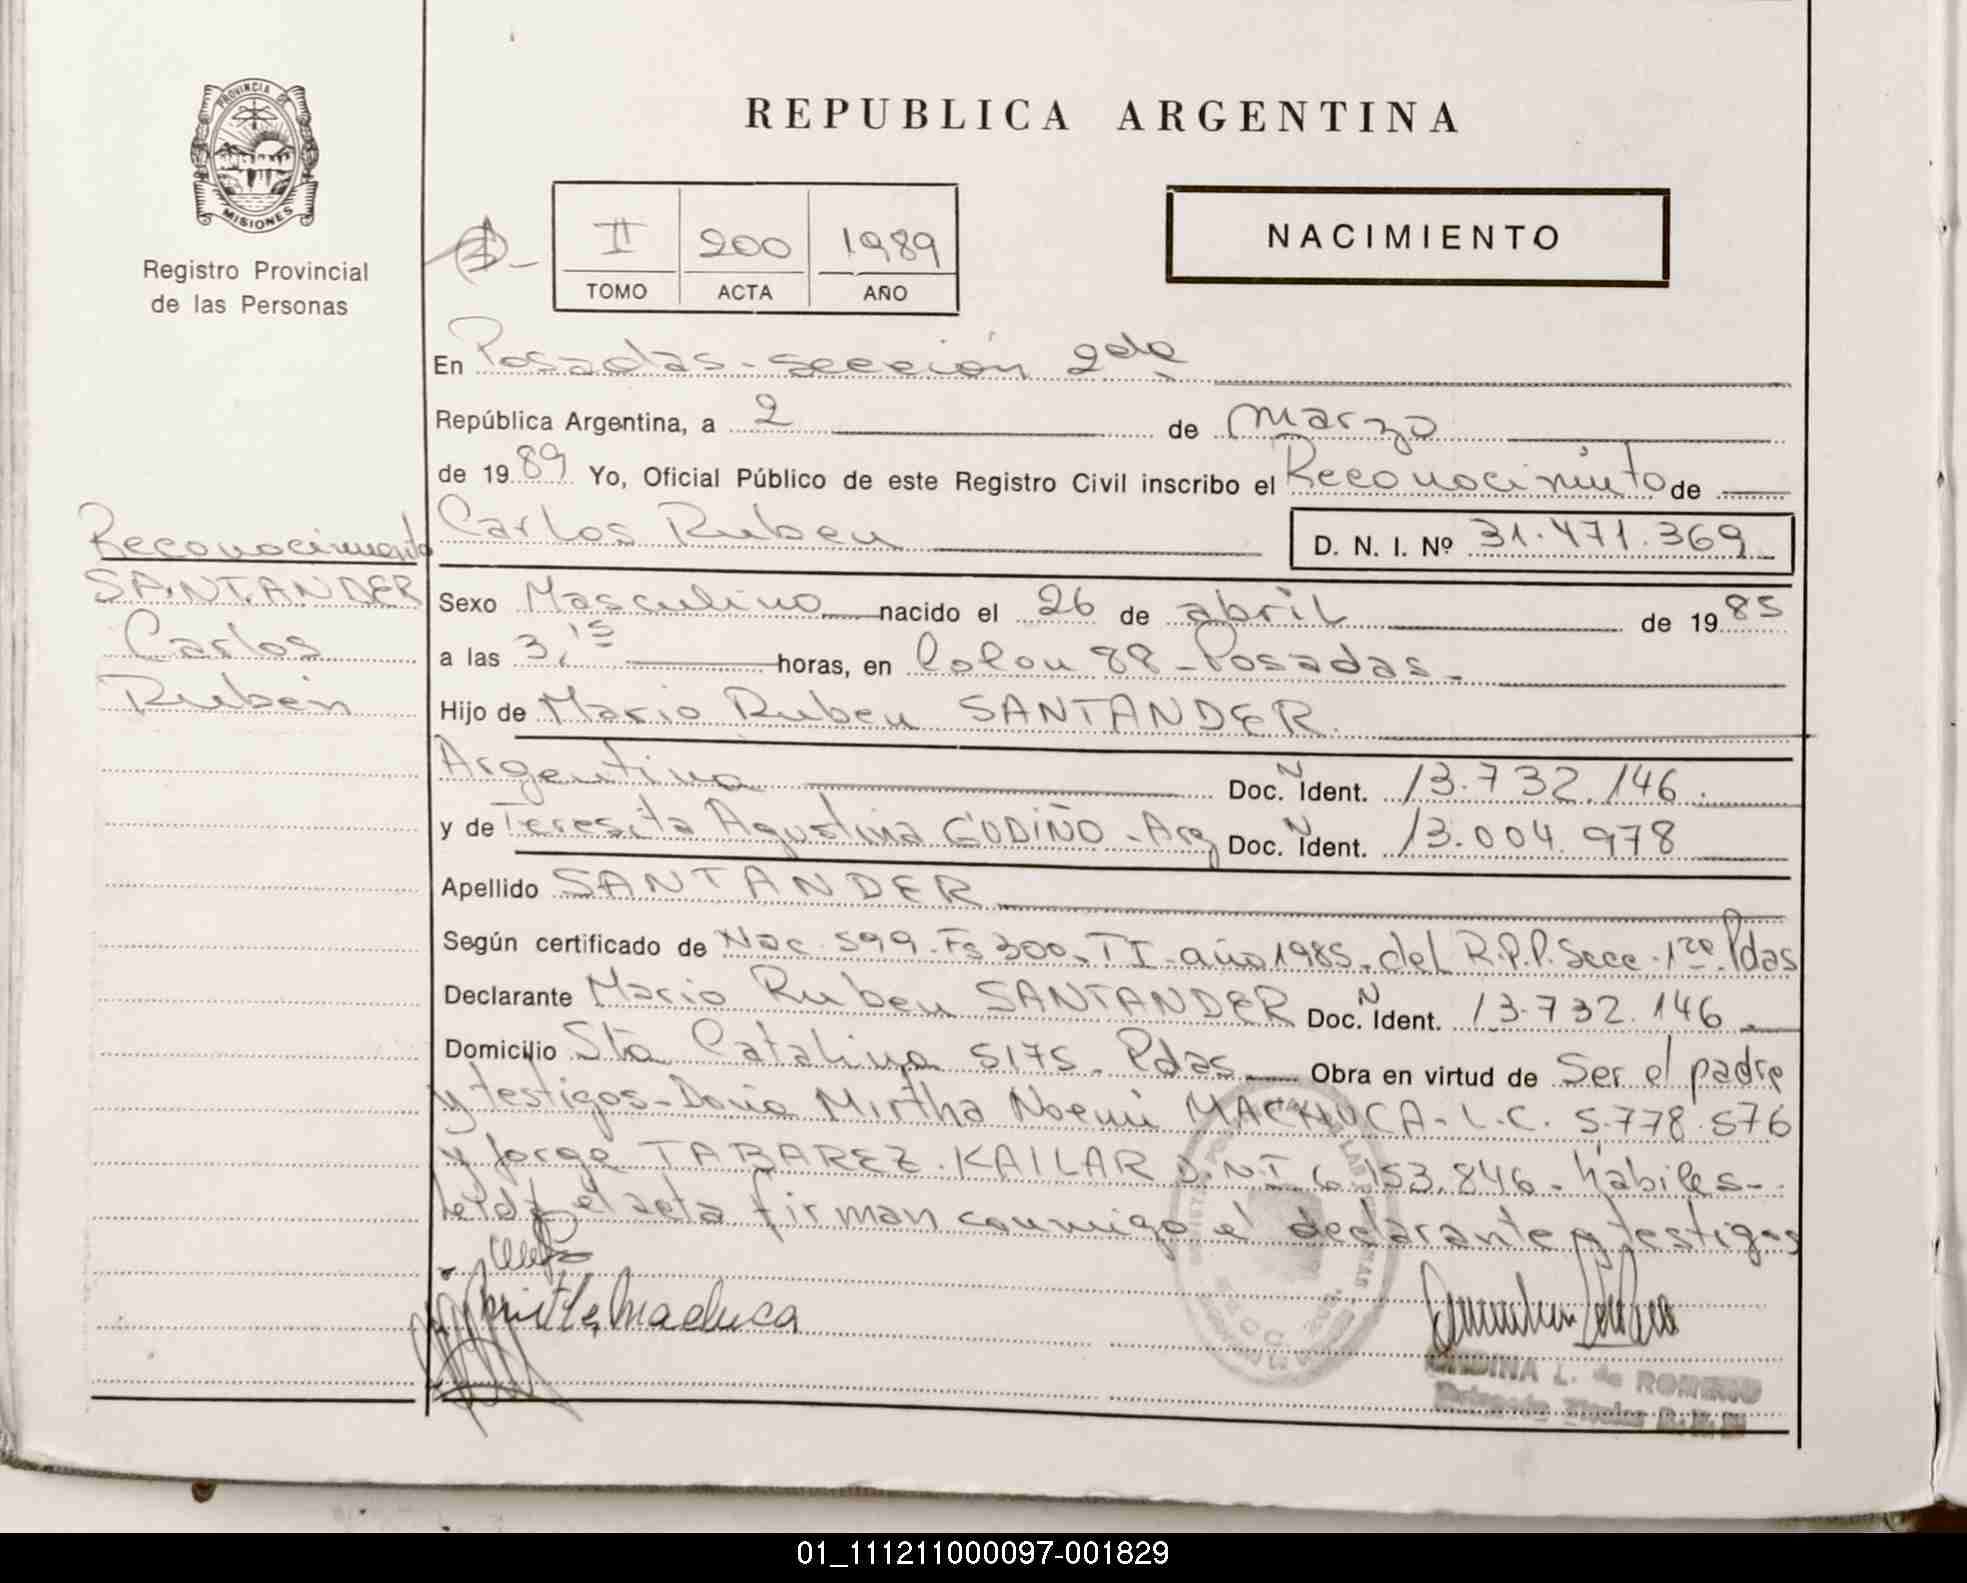 PROVINCIA DE
MISIONES
Registro Provincial
de las Personas
REPUBLICA ARGENTINA
II 200 1989
TOMO ACTA AÑO
NACIMIENTO
En Posadas - sección 2da
República Argentina, a 2 de marzo
de 1989 Yo, Oficial Público de este Registro Civil inscribo el Reconocimiento de
Carlos Ruben D. N. I. Nº 31.471.369
Reconocimiento
SANTANDER
Carlos
Ruben
Sexo Masculino nacido el 26 de abril de 1985
a las 3,15 horas, en Colon 88 - Posadas -
Hijo de Mario Ruben SANTANDER
Argentina Doc. N Ident. 13.732.146.
y de Teresita Agustina GODIÑO - Arg Doc. N Ident. 13.004.978
Apellido SANTANDER
Según certificado de Nac. 599. Fs 300. T I. año 1985. del R.P.P. Secc. 1ra. Pdas
Declarante Mario Ruben SANTANDER Doc. N Ident. 13.732.146
Domicilio Sta Catalina 5175. Pdas. Obra en virtud de Ser el padre
y testigos - Doña Mirtha Noemi MACHUCA - L.C. 5.778.576
y Jorge TABAREZ KAILAR D.N.I 6.153.846 - hábiles -
Leída el acta firman conmigo el declarante y testigos
Mirtha Machuca
L. de ROMERO
01_111211000097-001829